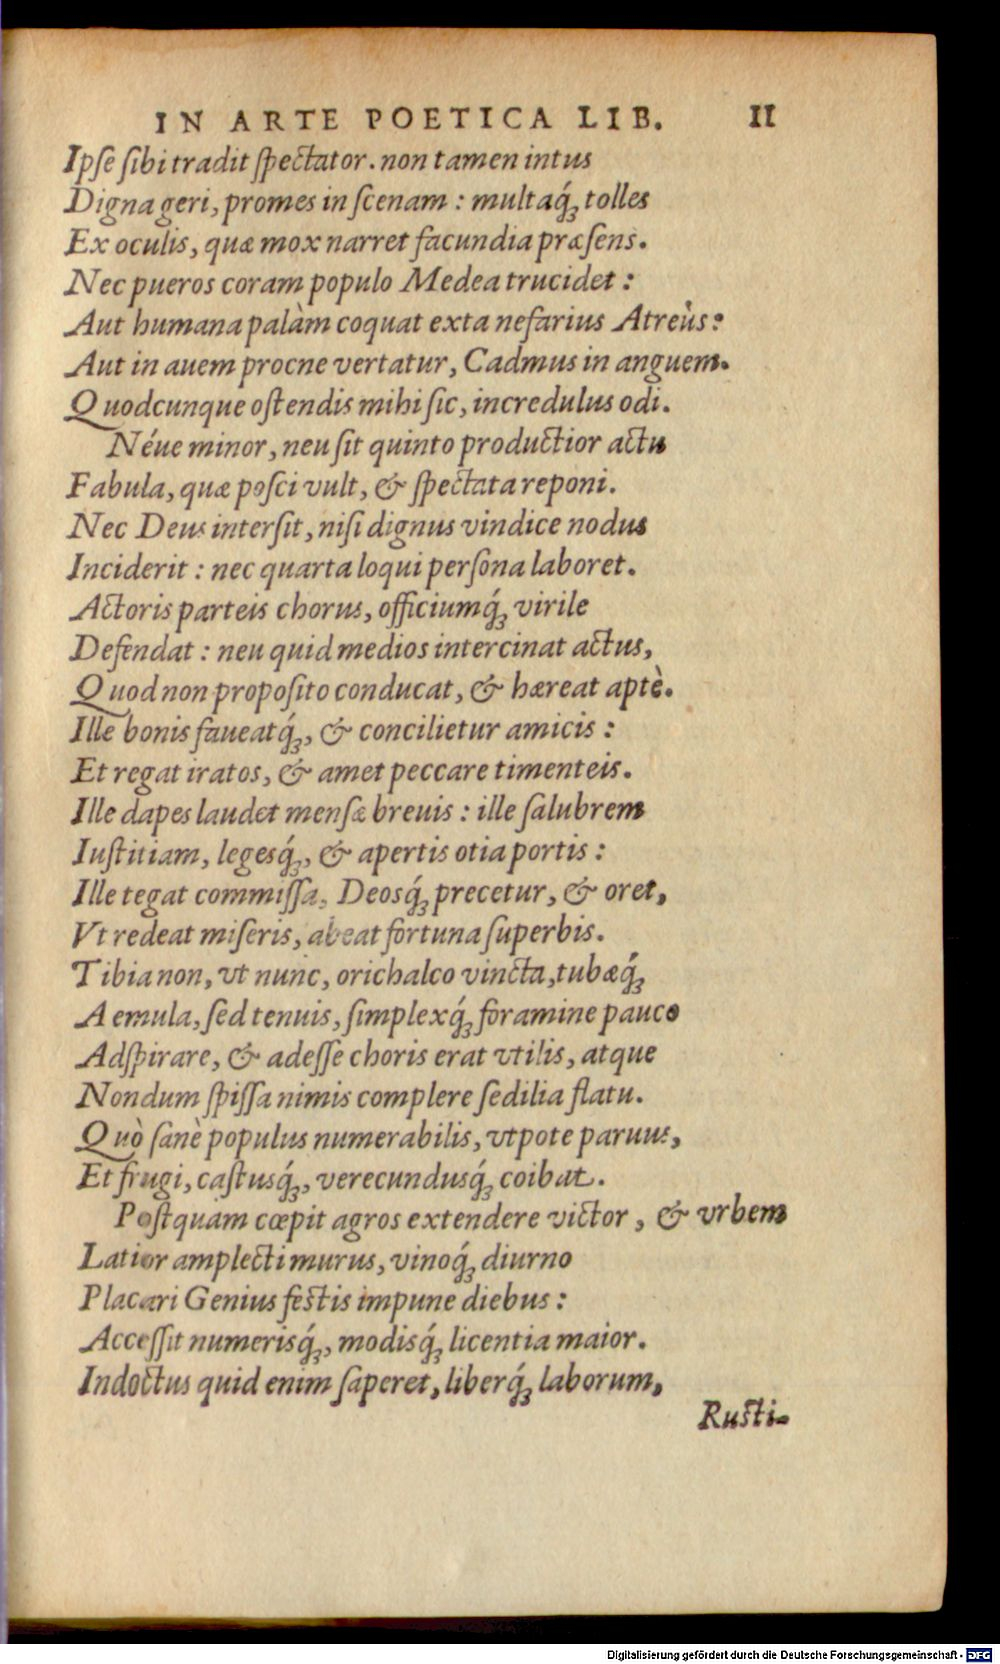 IN ARTE POETICA LIB. 11
Ipse sibi tradit spectator. non tamen intus
Digna geri, promes in scenam : multaq́ꝫ tolles
Ex oculis, quæ mox narret facundia præsens.
Nec pueros coram populo Medea trucidet :
Aut humana palàm coquat exta nefarius Atreùs:
Aut in auem procne vertatur, Cadmus in anguem.
Quodcunque ostendis mihi sic, incredulus odi.
Néue minor, neu sit quinto productior actu
Fabula, quæ posci vult, & spectata reponi.
Nec Deus intersit, nisi dignus vindice nodus
Inciderit : nec quarta loqui persona laboret.
Actoris parteis chorus, officiumq́ꝫ virile
Defendat : neu quid medios intercinat actus,
Quod non proposito conducat, & hæreat aptè.
Ille bonis faueatq́ꝫ, & concilietur amicis :
Et regat iratos, & amet peccare timenteis.
Ille dapes laudet mensæ breuis : ille salubrem
Iustitiam, legesq́ꝫ, & apertis otia portis :
Ille tegat commissa, Deosq́ꝫ precetur, & oret,
Vt redeat miseris, abeat fortuna superbis.
Tibia non, vt nunc, orichalco vincta, tubæq́ꝫ
Aemula, sed tenuis, simplexq́ꝫ foramine pauco
Adspirare, & adesse choris erat vtilis, atque
Nondum spissa nimis complere sedilia flatu.
Quò sanè populus numerabilis, vtpote paruus,
Et frugi, castusq́ꝫ, verecundusq́ꝫ coibat.
Postquàm cœpit agros extendere victor, & vrbem
Latior amplecti murus, vinoq́ꝫ diurno
Placari Genius festis impune diebus :
Accessit numerisq́ꝫ, modisq́ꝫ licentia maior.
Indoctus quid enim saperet, liberq́ꝫ laborum,
Rusti-
Digitalisierung gefördert durch die Deutsche Forschungsgemeinschaft - DFG